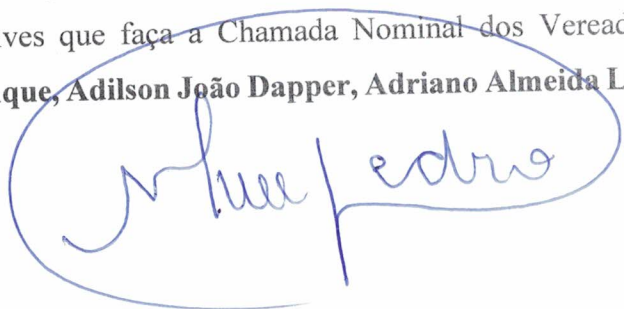 ves que faça a Chamada Nominal dos Veread
que, Adilson João Dapper, Adriano Almeida L
Pedro